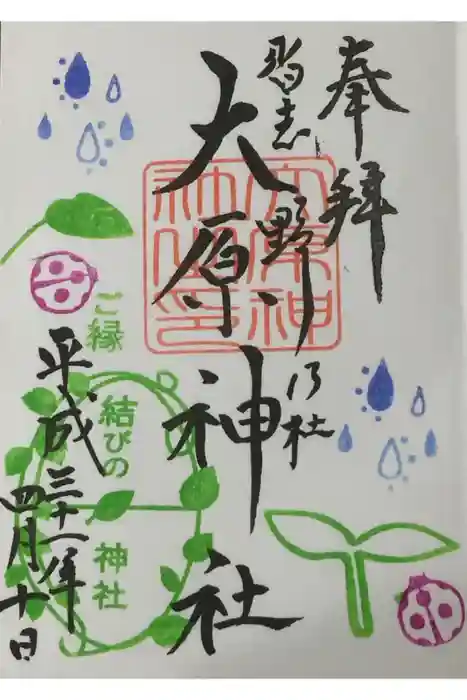 奉拝
習志野乃社
大原神社
大原神社印
ご縁
結びの
神社
平成三十一年
四月十日